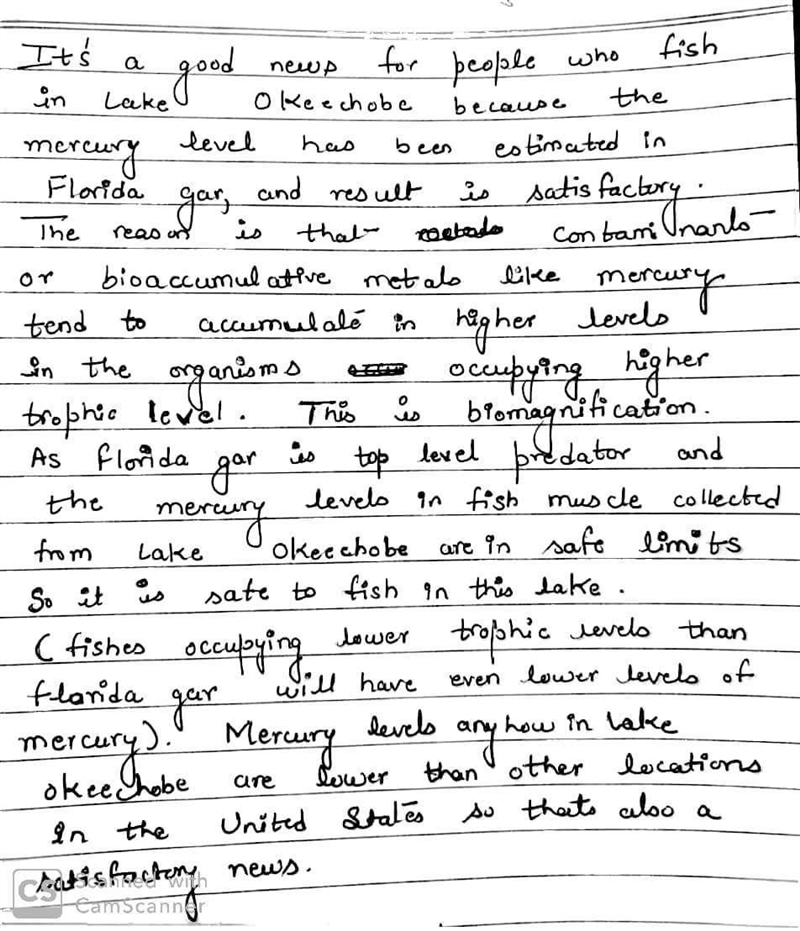 It's a good news for people who fish
in Lake Okeechobe because the
mercury level has been estimated in
Florida gar, and result is satisfactory.
The reason is that contaminants
or bioaccumulative metals like mercury
tend to accumulate in higher levels
in the organisms occupying higher
trophic level. This is biomagnification.
As Florida gar is top level predator and
the mercury levels in fish muscle collected
from Lake Okeechobe are in safe limits
So it is safe to fish in this lake.
(fishes occupying lower trophic levels than
florida gar will have even lower levels of
mercury). Mercury levels anyhow in Lake
okeechobe are lower than other locations
in the United States so thats also a
satisfactory news.
CS Scanned with
CamScanner